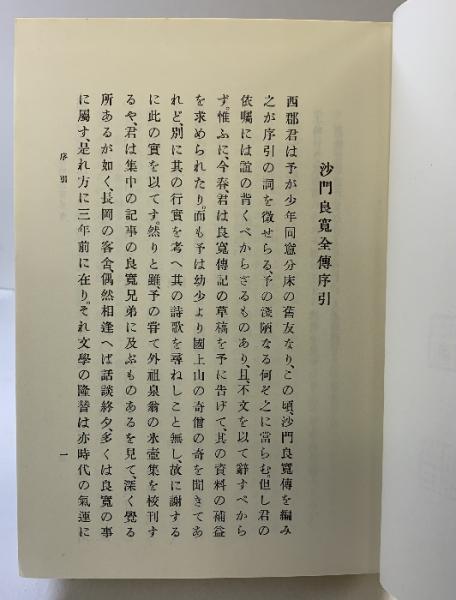 沙門良寬全傳序引
西郡君は予が少年同窓分床の舊友なり、この頃、沙門良寬傳を編み
之が序引の詞を徴せらる、予の淺陋なる何ぞ之に當らむ。但し君の
依囑には誼の背くべからざるものあり、且、不文を以て辭すべから
ず。惟ふに、今春、君は良寬傳記の草稿を予に告げて、其の資料の補益
を求められたり。而も予は幼少より國上山の奇僧の奇を聞きてあ
れど、別に其の行實を考へ其の詩歌を尋ねしこと無し、故に謝する
に此の實を以てす。然りと雖、予の嘗て外祖泉翁の氷壺集を校刊す
るや、君は集中の記事の良寬兄弟に及ぶものあるを見て、深く覺る
所あるが如く、長岡の客舍、偶然相逢へば話談終夕、多くは良寬の事
に屬す、是れ方に三年前に在り。それ文學の隆替は亦時代の氣運に
序引
一